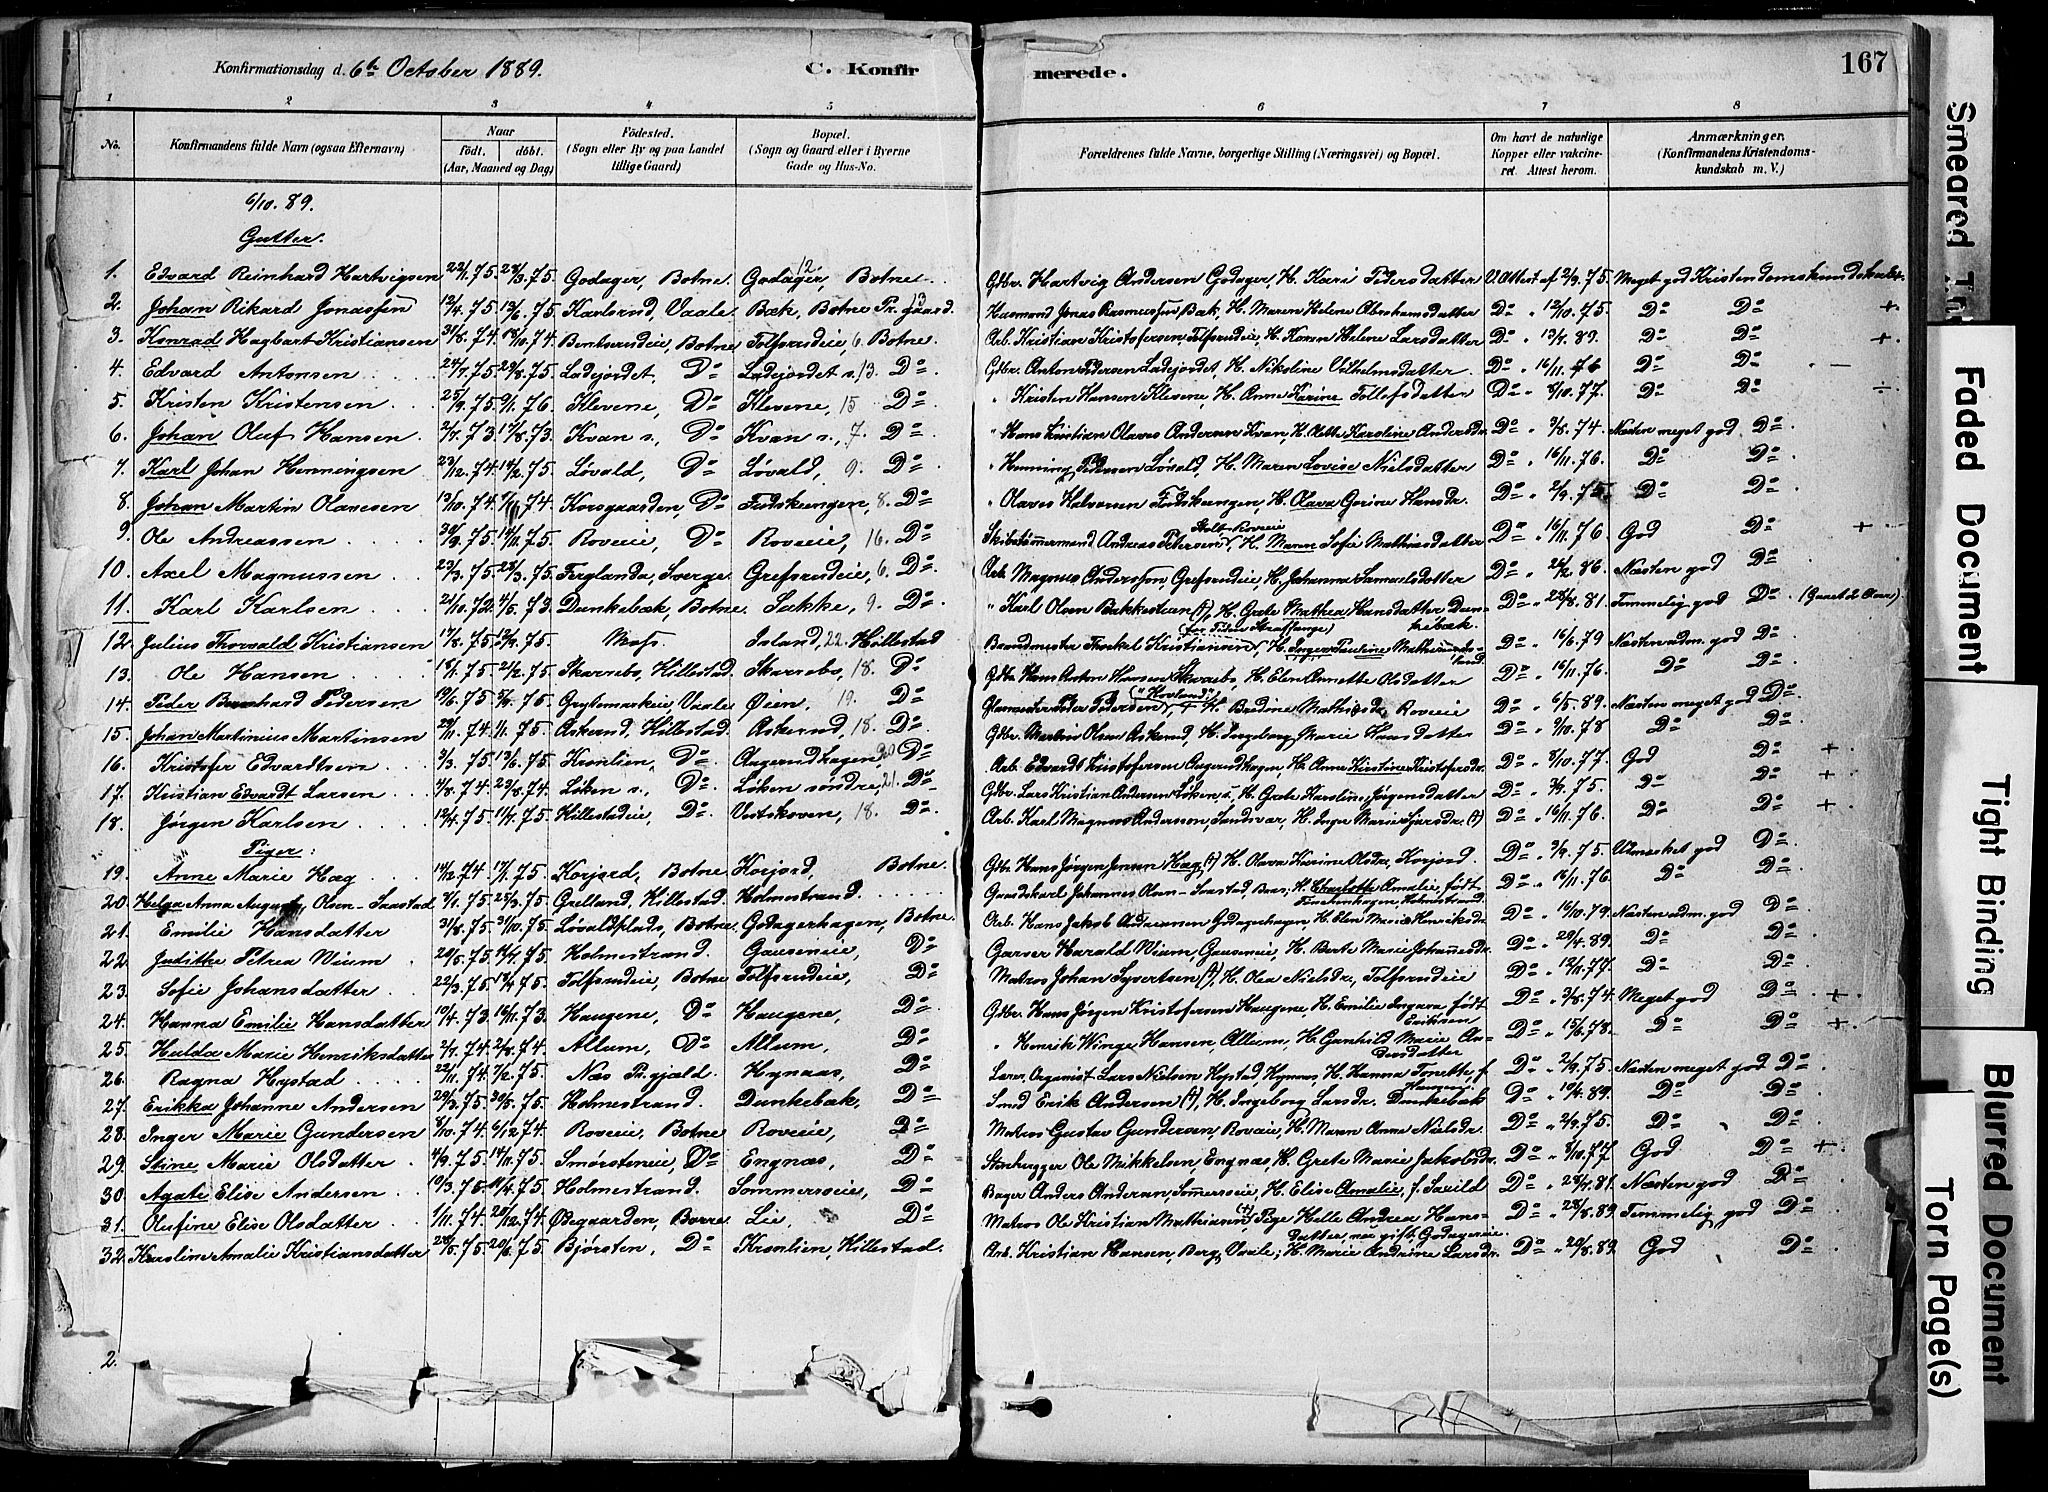 Konfirmationsdag d. 6te October 1889. C. Konfirmerede. 167
1 2 3 4 5 6 7 8
No. Konfirmandens fulde Navn (ogsaa Efternavn) Naar födt. döbt. (Aar, Maaned og Dag) Födested. (Sogn eller By og paa Landet tillige Gaard) Bopæl. (Sogn og Gaard eller i Byerne Gade og Hus-No. Forældrenes fulde Navne, borgerlige Stilling (Næringsvei) og Bopæl. Om havt de naturlige Kopper eller vakcineret. Attest herom. Anmærkninger. (Konfirmandens Kristendomskundskab m. V.)
6/10. 89.
Gutter.
1. Edvard Reinhard Hartvigsen 22/1.75. 29/3.75. Godager, Botne Godager, 12 Botne Gdbr. Hartvig Andersen Godager, H. Kari Pedersdatter V. Attest af 2/9.75. Meget god Kristendomskundskab
2. Johan Rikard Jonassen 12/4.75 13/6.75. Karlsrud, Vaale Bæk, Botne Pr.gaard. 13 Husmand Jonas Rasmussen Bæk, H. Maren Helene Abrahamsdatter Do " 12/10.75. Do Do +
3. Konrad Hagbart Kristiansen 31/8.74. 18/10.74. Bentserudeie, Botne Tolfsrudeie, 6. Botne. Arb. Kristian Kristofersen Tolfsrudeie, H. Karen Helene Larsdatter Do " 13/7.89. Do Do +
4. Edvard Antonsen 24/7.75. 29/8.75. Ladejordet, Do Ladejordet s. 13. Do Gdbr. Anton Pedersen Ladejordet, H. Nikoline Vilhelmsdatter. Do " 16/11.76 Do Do -
5. Kristen Kristensen 25/9.75. 9/1.76. Klevene, Do Klevene, 15 Do " Kristen Hansen Klevene, H. Anne Karine Tollefsdatter Do " 8/10.77. Do Do ÷
6. Johan Oluf Hansen 2/7.73. 17/8.73. Kvan s., Do Kvan s., 7. Do " Hans Kristian Olaves Andersen Kvan, H. Mette Karoline Andersdr. Do " 3/8.74. Næsten meget god Do
7. Karl Johan Henningsen 23/12.74. 14/2.75. Løvald, Do Løvald, 9. Do " Henning Pedersen Løvald, H. Maren Lovise Nielsdatter Do " 16/11.76. Do Do
8. Johan Martin Olavesen 13/10.74. /11.74. Korsgaarden, Do 8. Do " Olaves Halvorsen H. Olava Gurine Hansdr. Do " 2/9.75. Do Do
9. Ole Andreassen 30/9.75. 14/11.75. Roveie, Do Roveie, 16. Do Skibstømmermand Andreas Petersen Stolt Roveie, H. Maren Sofie Mathiasdatter Do " 16/11.76 God Do +
10. Axel Magnussen 23/3.75. 28/3.75. Ferglanda, Sverge. Grefsrudeie, 6. Do Arb. Magnus Andersson, Grefsrudeie, H. Johanna Samuelsdatter Do " 24/2.86. Næsten god Do
11. Karl Karlsen 21/10.72. 4/5.73. Dunkebæk, Botne. Sukke, 9. Do " Karl Olsen Bakkestuen (†), H. Grete Mathea Hansdatter Dunkebæk. Do " 28/8.81. Temmelig god Do
12. Julius Thorvald Kristiansen 17/8.75. 12/9.75. Moss. Island, 22. Hillestad Brandmester Thorkel Kristiansen (før Tiden Straffange), H. Inger Pauline Do " 16/6.79 Næsten udm. god Do
13. Ole Hansen 18/1.75. 21/2.75. Skarnebo, Hillestad. Skarnebo, 18. Do Gdbr. Hans Anton Hansen Skarnebo, H. Elen Annette Olsdatter Do " 16/11.76. Do Do
14. Peder Bernhard Pedersen 19/6.75 5/9.75. Grytemarkeie, Vaale Øien, 19. Do Peder Pedersen ("Hovland"), H. Bredine Mathisdr. Roveie Do " 6/5.89. Næsten meget god Do
15. Johan Martinius Martinsen 29/11.74. 1/1.75. Askerud, Hillestad. Askerud, 18. Do Gdbr. Martin Olsen Askerud, H. Ingeborg Marie Hansdatter Do " 2/10.78 Do Do
16. Kristofer Edvardtsen 3/3.75. 13/6.75. Kronlien, Do Angerudhagen, 20 Do Arb. Edvardt Kristofersen Angerudhagen, H. Anne Kirstine Kristofersdr. Do " 8/10.77. God Do +
17. Kristian Edvardt Larsen 4/8.74. 23/8.74. Løken s., Do. Løken søndre, 21. Do Gdbr. Lars Kristian Andersen Løken s., H. Grete Karoline Jørgensdatter Do " 3/9.75. Do Do +
18. Jørgen Karlsen 12/4.75. 11/7.75. Hillestadeie, Do. Vestskoven, 18. Do Arb. Karl Magnus Andersson, Sandsvær, H. Inger Marie (†) Do " 16/11.76. Do Do +
Piger:
19. Anne Marie Hag 14/12.74 17/1.75. Korjord, Botne Korjord, Botne Gdbr. Hans Jørgen Jensen Hag (†) H. Olava Karine Olsdr. Korjord. Do " 3/9.75. Udmerket god Do
20. Helga Anna Augusta Olsen-Saastad 7/1.75. 25/3.75. Grelland, Hillestad. Holmestrand. Gaardskarl Johannes Olsen-Saastad, H. Charlotte Amalie, født Holmestrand Do " 16/11.76. Do Do
21. Emilie Hansdatter 31/8.75. 31/10.75. Løvaldplads, Botne. Godagerhagen, Botne. Arb. Hans Jakob Andreasen Godagerhagen, H. Elen Marie Henriksdr. Do " 16/10.79. Næsten udm. god Do
22. Judithe Petrea Wium 20/5.75. 11/7.75. Holmestrand. Gauseneie, Do Garver Harald Wium, Gauseneie, H. Berte Marie Johannesdr. Do " 29/4.89. Do Do
23. Sofie Johansdatter 22/3.75. 18/4.75. Tolfsrudeie, Botne Tolfsrudeie, Do Matros Johan Syvertsen (†), H. Olea Nielsdr., Tolfsrudeie Do " 12/11.77. Do Do
24. Hanna Emilie Hansdatter 10/4.73. 16/11.73. Haugene, Do Haugene, Do Gdbr. Hans Jørgen Kristofersen Haugene, H. Emilie Ingara født Eriksen Do " 3/8.74. Meget god Do +
25. Hulda Marie Henriksdatter 2/7.74. 2/8.74. Allum, Do Allum, Do " Henrik Winge Hansen, Allum, H. Gunhild Marie Andersdatter Do " 15/6.78. Do Do +
26. Ragna Hystad 22/11.74. 7/2.75. Næs Pr.gjæld. Hynaas, Do Lærer, Organist Lars Nielsen Hystad, Hynaas, H. Hanna Tonette f. Do " 2/9.75. Næsten meget god Do
27. Erikka Johanne Andersen 29/3.75. 30/5.75. Holmestrand. Dunkebæk, Do Smed Erik Andersen (†), H. Ingeborg Larsdr. Dunkebæk Do " 10/4.89. Do Do
28. Inger Marie Gundersen 8/10.74. 6/12.74. Roveie, Botne Roveie, Do Matros Gustav Gundersen, Roveie, H. Maren Anne Nielsdr. Do " 2/9.75. Do Do
29. Stine Marie Olsdatter 4/9.75. 14/11.75. Smørsteneie, Do Engnæs, Do Stenhugger Ole Mikkelsen, Engnæs, H. Grete Marie Jakobsdr. Do " 8/10.77 God Do +
30. Agate Elise Andersen 19/3.75. 11/4.75. Holmestrand. Sommerseie, Do Bager Anders Andersen, Sommerseie, H. Elise Amalie, f. Saxild Do " 28/7.81. Næsten god Do
31. Olufine Elise Olsdatter 1/11.74. 28/12.74. Ødegaarden, Borre. Lie, Do Matros Ole Kristian Mathiasen (†), Pige Helle Andrea Hansdatter, nu gift, Godagereie. Do " 28/8.89. Temmelig god Do
32. Karoline Amalie Kristiansdatter 28/5.75. 20/6.75. Bjørsten, Do Kronlien, Hillestad. Arb. Kristian Hansen, Berg, Vaale; H. Marie Andrine Larsdr. Do " 29/8.89. God Do
2.
Smeared
Faded Document
Tight Binding
Blurred Document
Torn Page(s)